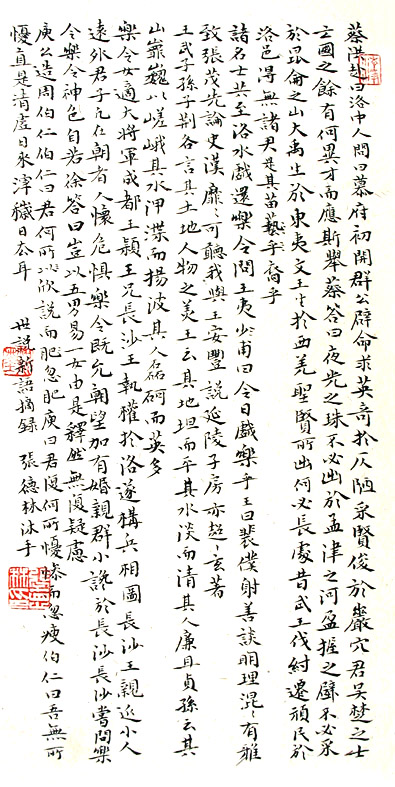 蔡洪赴曰洛中人問曰慕府初開群公辟命求英奇於仄陋采賢俊於巖穴君吳楚之士
亡國之餘有何異才而應斯舉蔡答曰夜光之珠不必出於孟津之河盈握之璧不必采
於昆侖之山大禹生於東夷文王生於西羌聖賢所出何必長處昔武王伐紂遷頑民於
洛邑得無諸君是其苗藝乎裔乎
諸名士共至洛水戲還樂令問王夷少甫曰今日戲樂乎王曰裴僕射善談明理混〻有雅
致張茂先論史漢靡〻可聽我與王安豐說延陵子房亦超〻玄著
王武子孫子荊各言其土地人物之美王云其地坦而平其水淡而清其人廉且貞孫云其
山嶵巍以嵯峨其水㳌渫而揚波其人磊砢而英多
樂令女適大將軍成都王穎王兄長沙王執權於洛遂構兵相圖長沙王親近小人
遠外君子凡在朝者人懷危懼樂令既允朝望加有婚親群小說於長沙長沙嘗問樂
令樂令神色自若徐答曰豈以五男易一女由是釋然無復疑慮
庾公造周伯仁伯仁曰君何所以欣說而肥忽肥庾曰君復何所憂慘而忽瘦伯仁曰吾無所
憂直是清虛日來滓穢日去耳
世說新語摘錄 張德林沐手